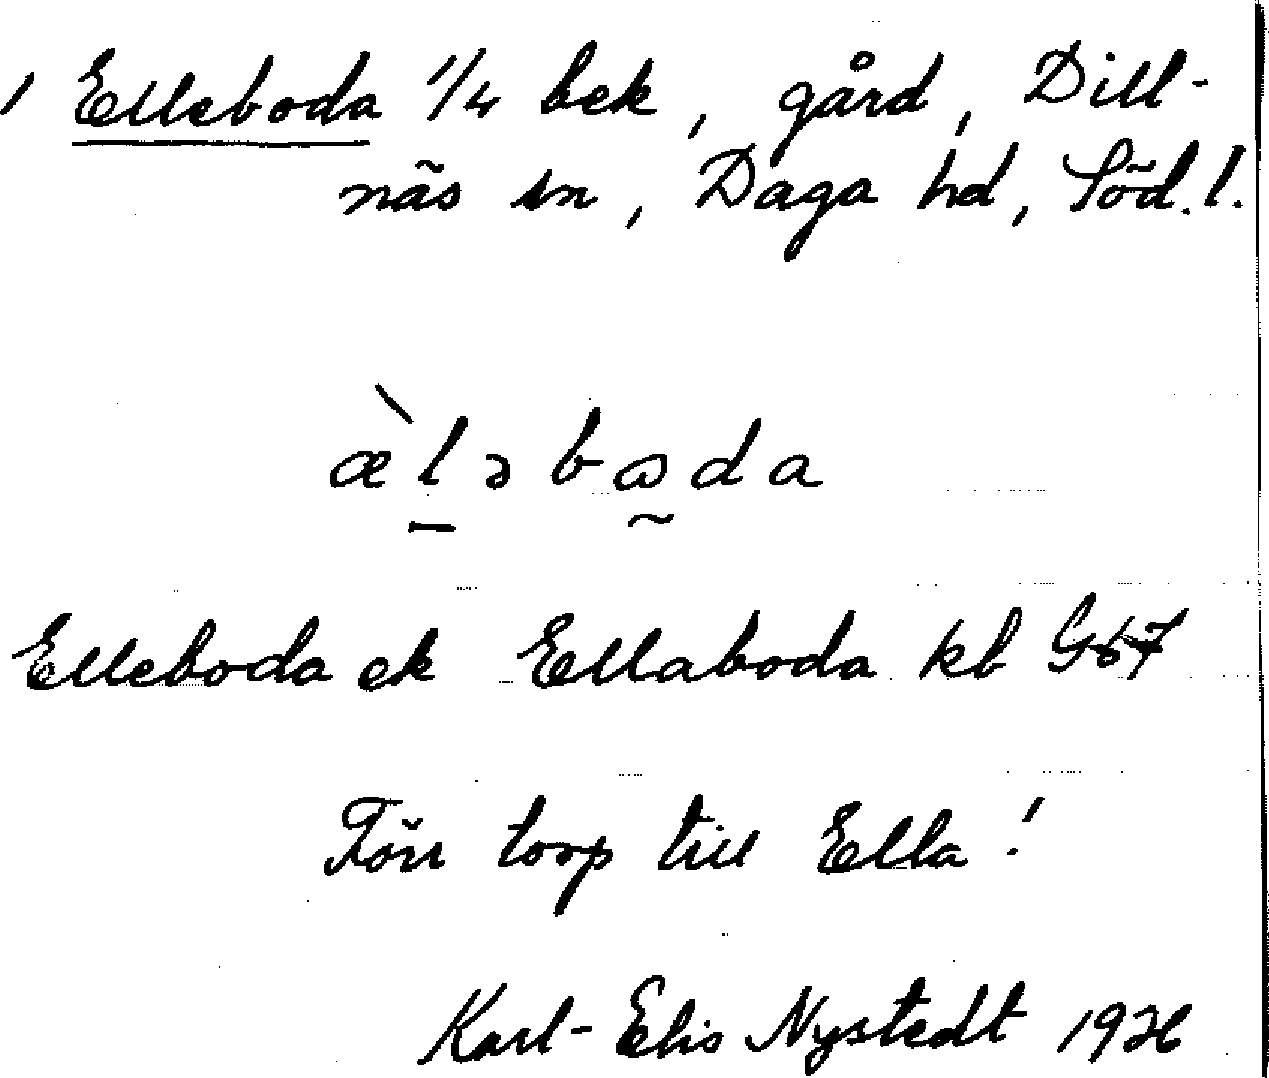 / Elleboda 1/4 bek, gård, Dill-
näs sn, Daga hd, Söd. l.
æ̀l̠əbɷ̰da
Elleboda ek Ellaboda kb G67
Förr torp till Ella!
Karl-Elis Nystedt 1926